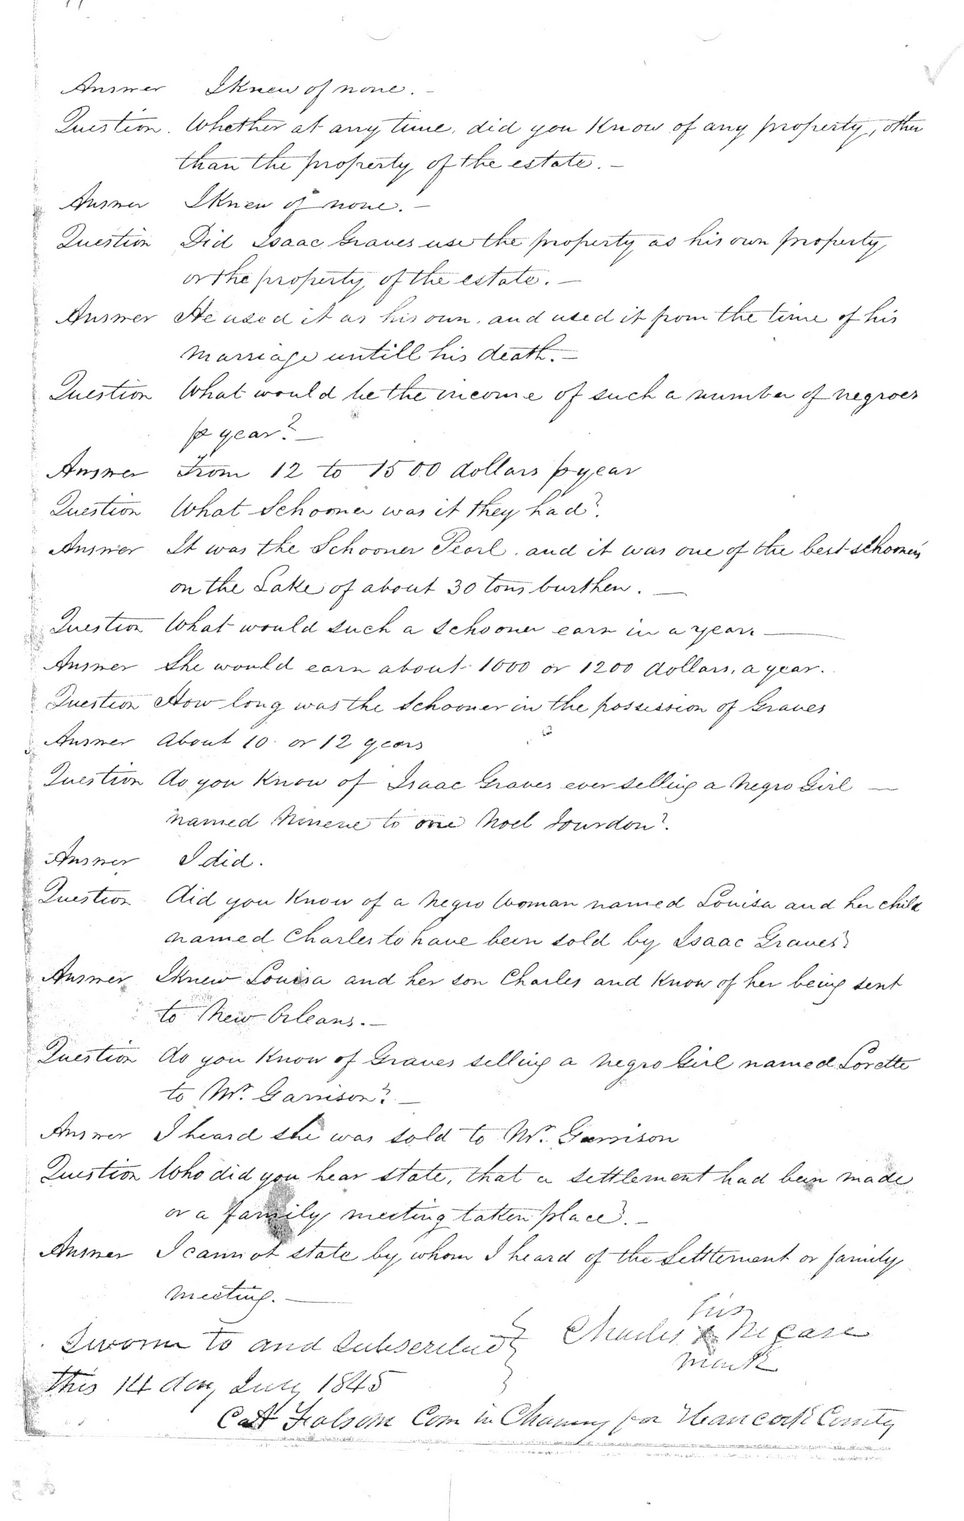 Answer I knew of none. -
Question. Whether at any time, did you Know of any property, other
than the property of the estate. -
Answer I Knew of none. -
Question Did Isaac Graves use the property as his own property
or the property of the estate. -
Answer He used it as his own. and used it from the time of his
marriage untill his death. -
Question What would be the income of such a number of negroes
pr year? -
Answer From 12 to 1500 dollars pr year
Question What Schooner was it they had?
Answer It was the Schooner Pearl. and it was one of the best schooners
on the Lake of about 30 tons burthen. -
Question What would such a schooner earn in a year -
Answer She would earn about 1000 or 1200 dollars, a year.
Question How long was the schooner in the possession of Graves
Answer about 10 or 12 years
Question do you Know of Isaac Graves ever selling a Negro Girl -
named to one Noel Jourdon?
Answer I did.
Question did you Know of a Negro Woman named Louisa and her child
named Charles to have been sold by Isaac Graves?
Answer I knew Louisa and her son Charles and Know of her being sent
to New Orleans. -
Question do you Know of Graves selling a negro Girl named Lorette
to Mr. Garrison? -
Answer I heard she was sold to Mr. Garrison
Question Who did you hear state, that a settlement had been made
or a family meeting taken place? -
Answer I cannot state by whom I heard of the Settlement or family
meeting. -
his
Charles X Necase
mark
Sworn to and Subscribed
this 14 day July 1845
C A Folsom Com in Chancery for Hancock County